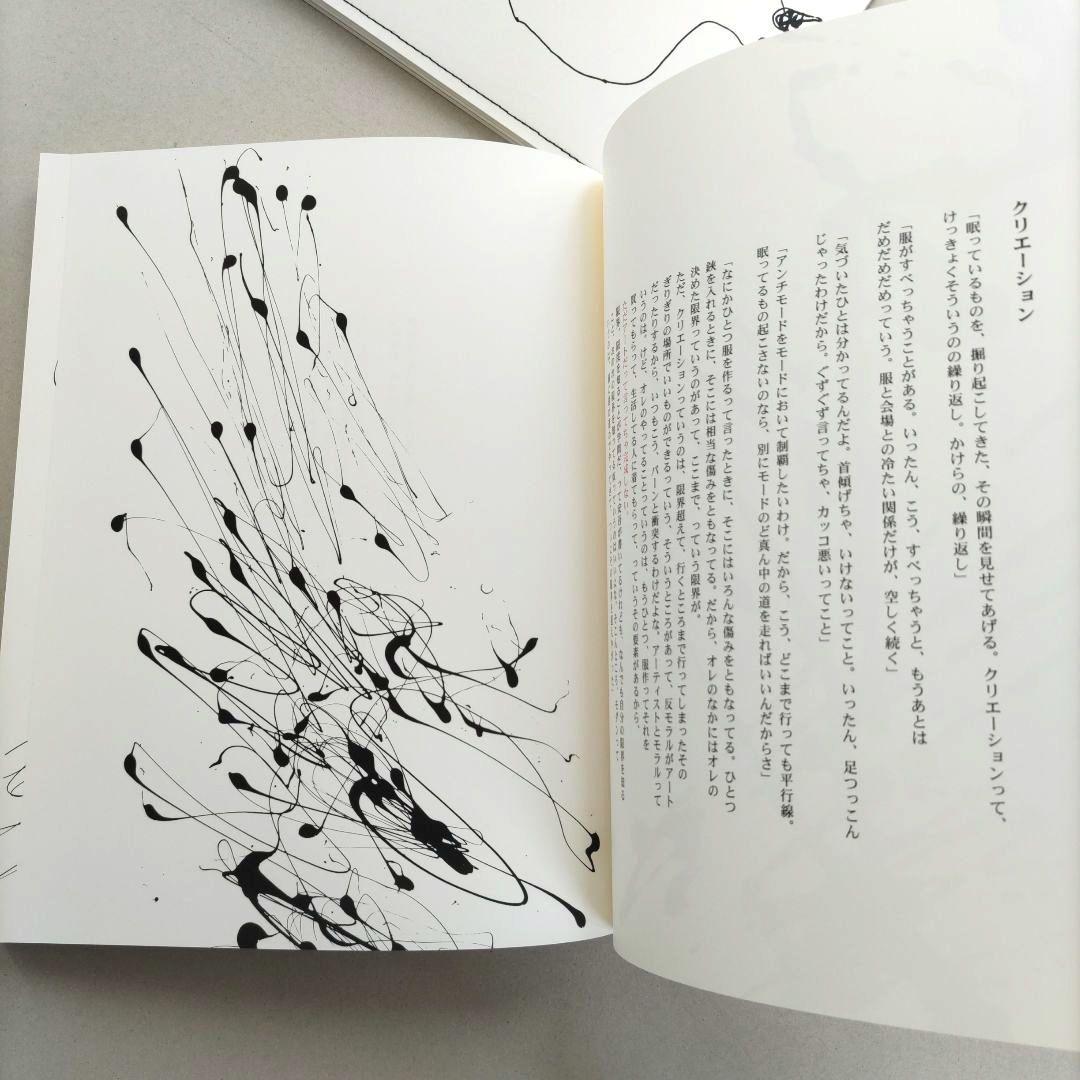 クリエーション
「眠っているものを、掘り起こしてきた、その瞬間を見せてあげる。クリエーションって、
けっきょくそういうのの繰り返し。かけらの、繰り返し」
「服がすべっちゃうことがある。いったん、こう、すべっちゃうと、もうあとは
だめだめだめっていう。服と会場との冷たい関係だけが、空しく続く」
「気づいたひとは分かってるんだよ。首傾げちゃ、いけないってこと。いったん、足つっこん
じゃったわけだから。ぐずぐず言ってちゃ、カッコ悪いってこと」
「アンチモードをモードにおいて制覇したいわけ。だから、こう、どこまで行っても平行線。
眠ってるもの起こさないのなら、別にモードのど真ん中の道を走ればいいんだからさ」
「なにかひとつ服を作るって言ったときに、そこにはいろんな傷みをともなってる。ひとつ
鋏を入れるときに、そこには相当な傷みをともなってる。だから、オレのなかにはオレの
決めた限界っていうのがあって、ここまで、っていう限界が。
ただ、クリエーションっていうのは、限界超えて、行くところまで行ってしまったその
ぎりぎりの場所でいいものができるっていう、そういうところがあって、反モラルがアート
だったりするから、いつもこう、バーンと衝突するわけだよな、アーティストとモラルって
いうのは。けど、オレのやってることっていうのは、もうひとつ、服作ってそれを
買ってもらって、生活してる人に着てもらって、っていうその要素があるから、